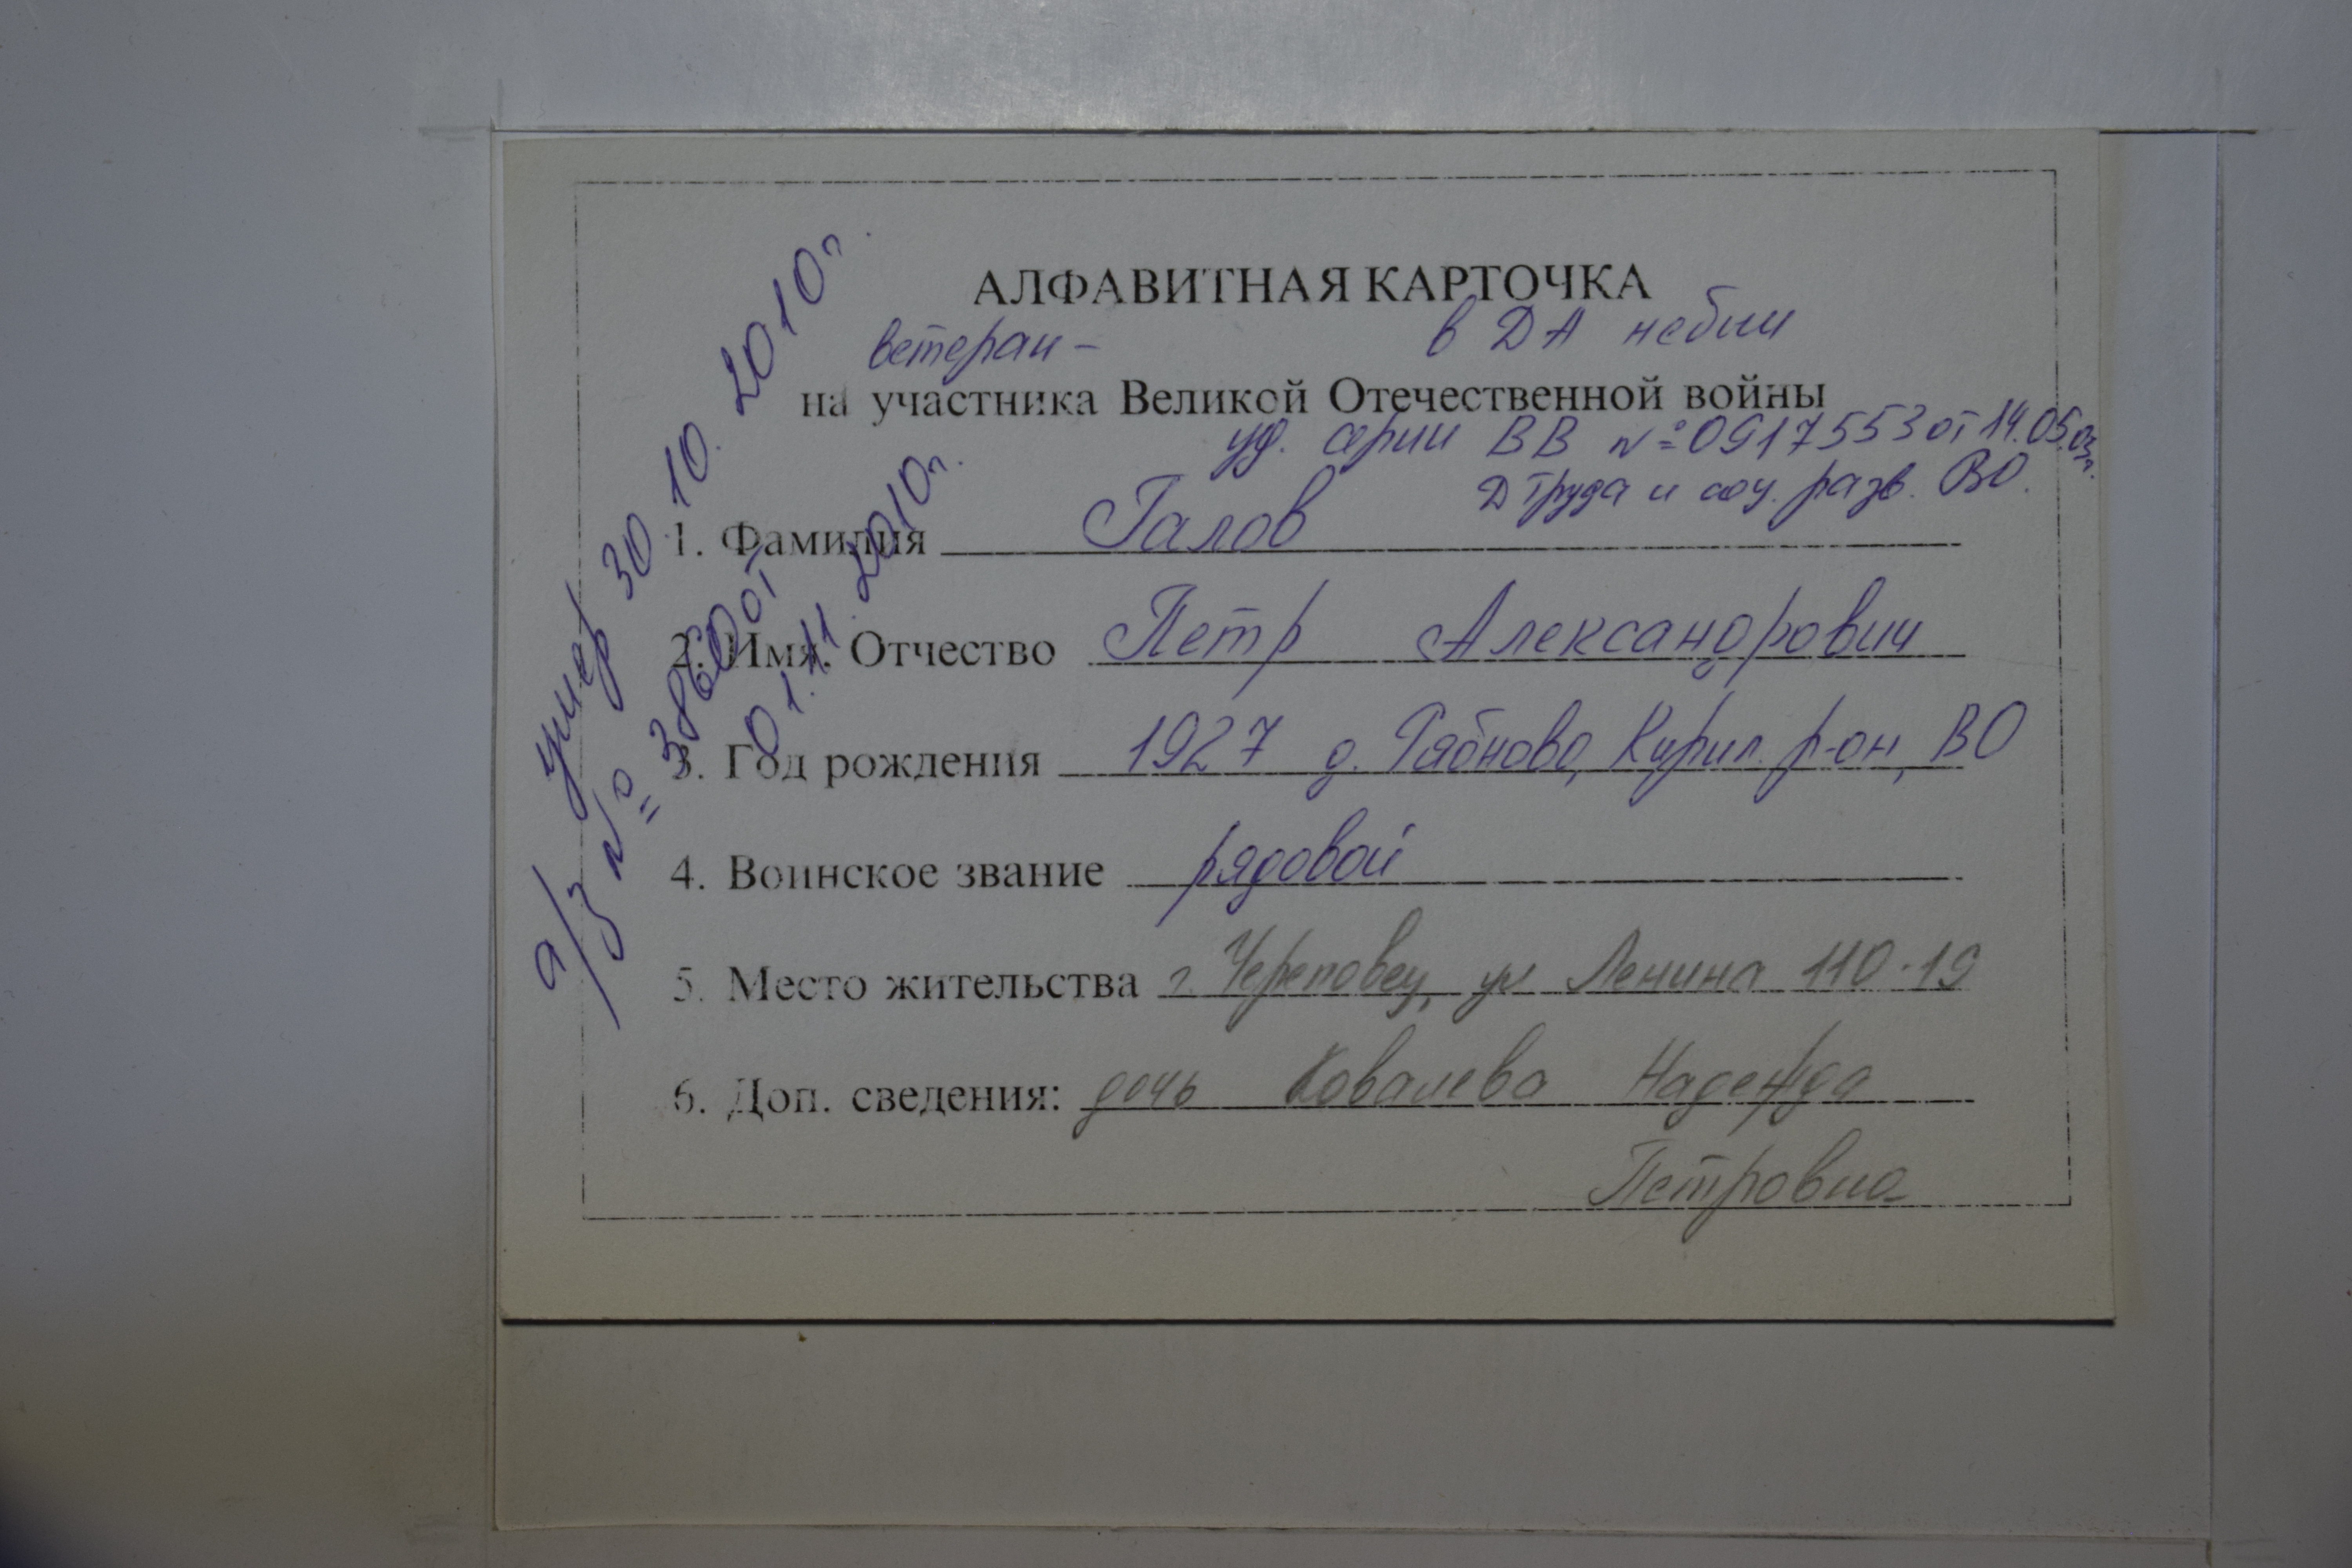 АЛФАВИТНАЯ КАРТОЧКА
ветеран - в ДА не был
на участника Великой Отечественной войны
уд. серии ВВ № 0917553 от 14.05.03г.
Д труда и соц. разв. ВО.
1. Фамилия Галов
2. Имя, Отчество Петр Александрович
3. Год рождения 1927 д. Рябново, Кирил. р-он, ВО
4. Воинское звание рядовой
5. Место жительства г. Череповец, ул Ленина 110-19
6. Доп. сведения: дочь Ковалева Надежда
Петровна
умер 30.10.2010г.
а/з № 3860 от
01.11.2010г.